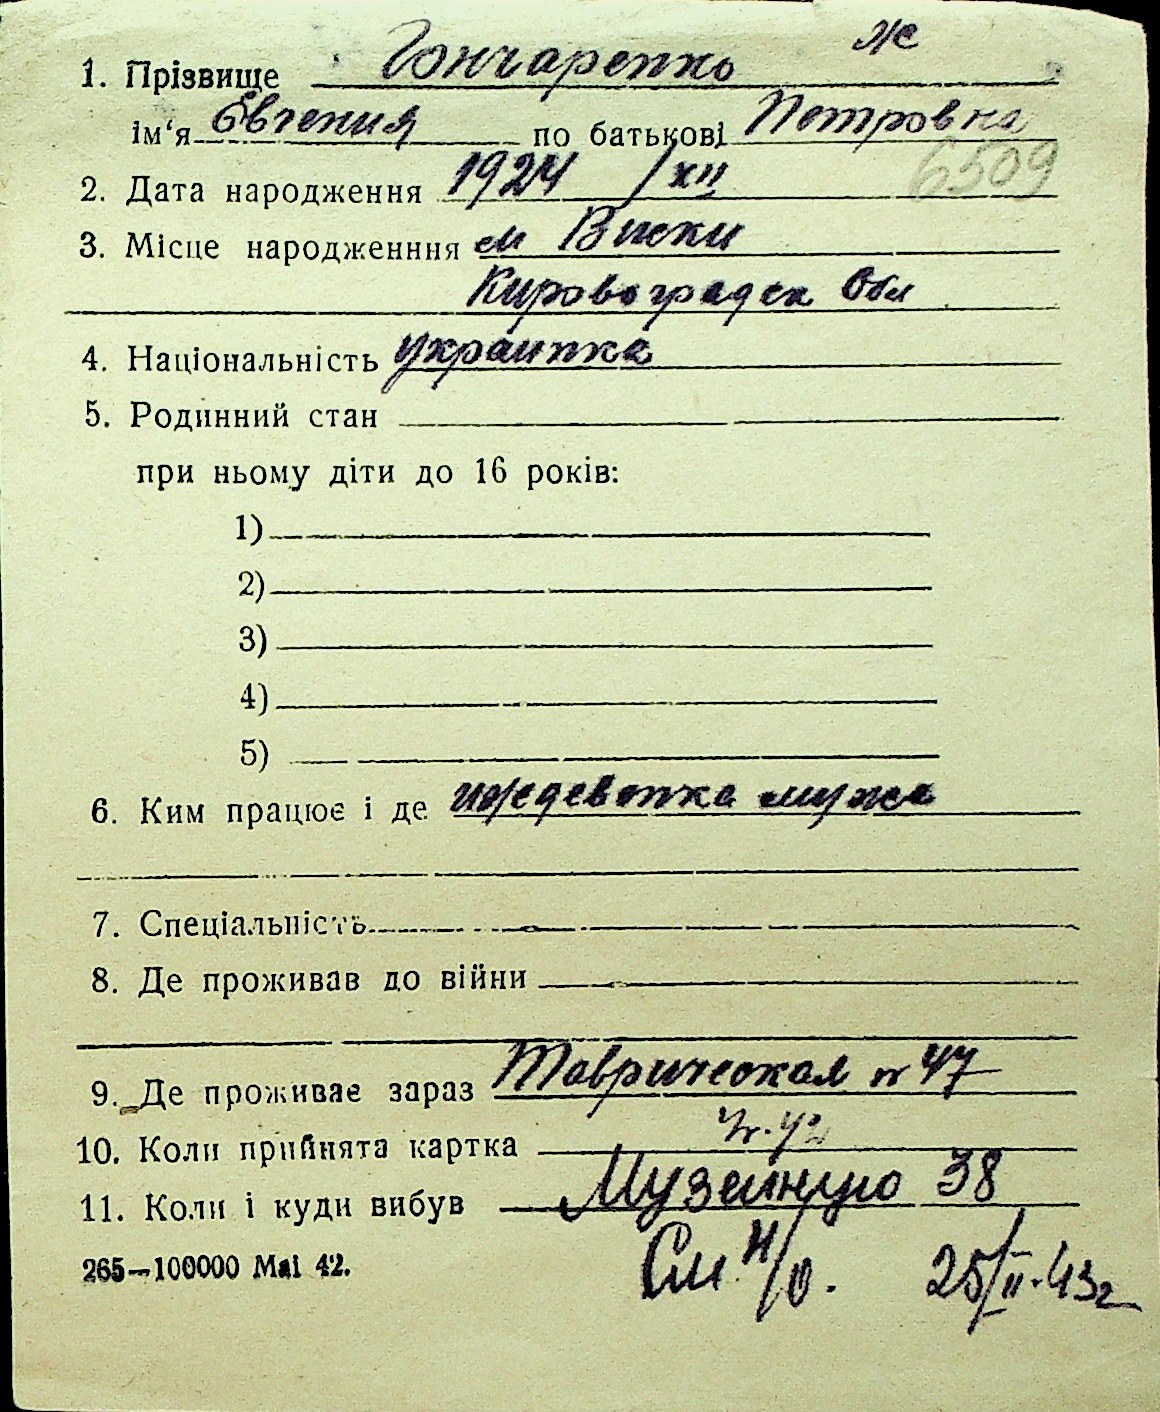 ж
1. Прізвище Гончаренко
ім‘я Євгения по батькові Петровна
6509
2. Дата народження 1924 /XII
3. Місце народженння м Виски
Кировоградск Обл
4. Національність украинка
5. Родинний стан
при ньому діти до 16 років:
1)
2)
3)
4)
5)
6. Ким працює і де иждевенка мужа
7. Спеціальність
8. Де проживав до війни
9. Де проживає зараз Таврическая № 47
10. Коли прийнята картка
11. Коли і куди вибув Музейную 38
265—100000 Маі 42. См н/о. 25/II-43г